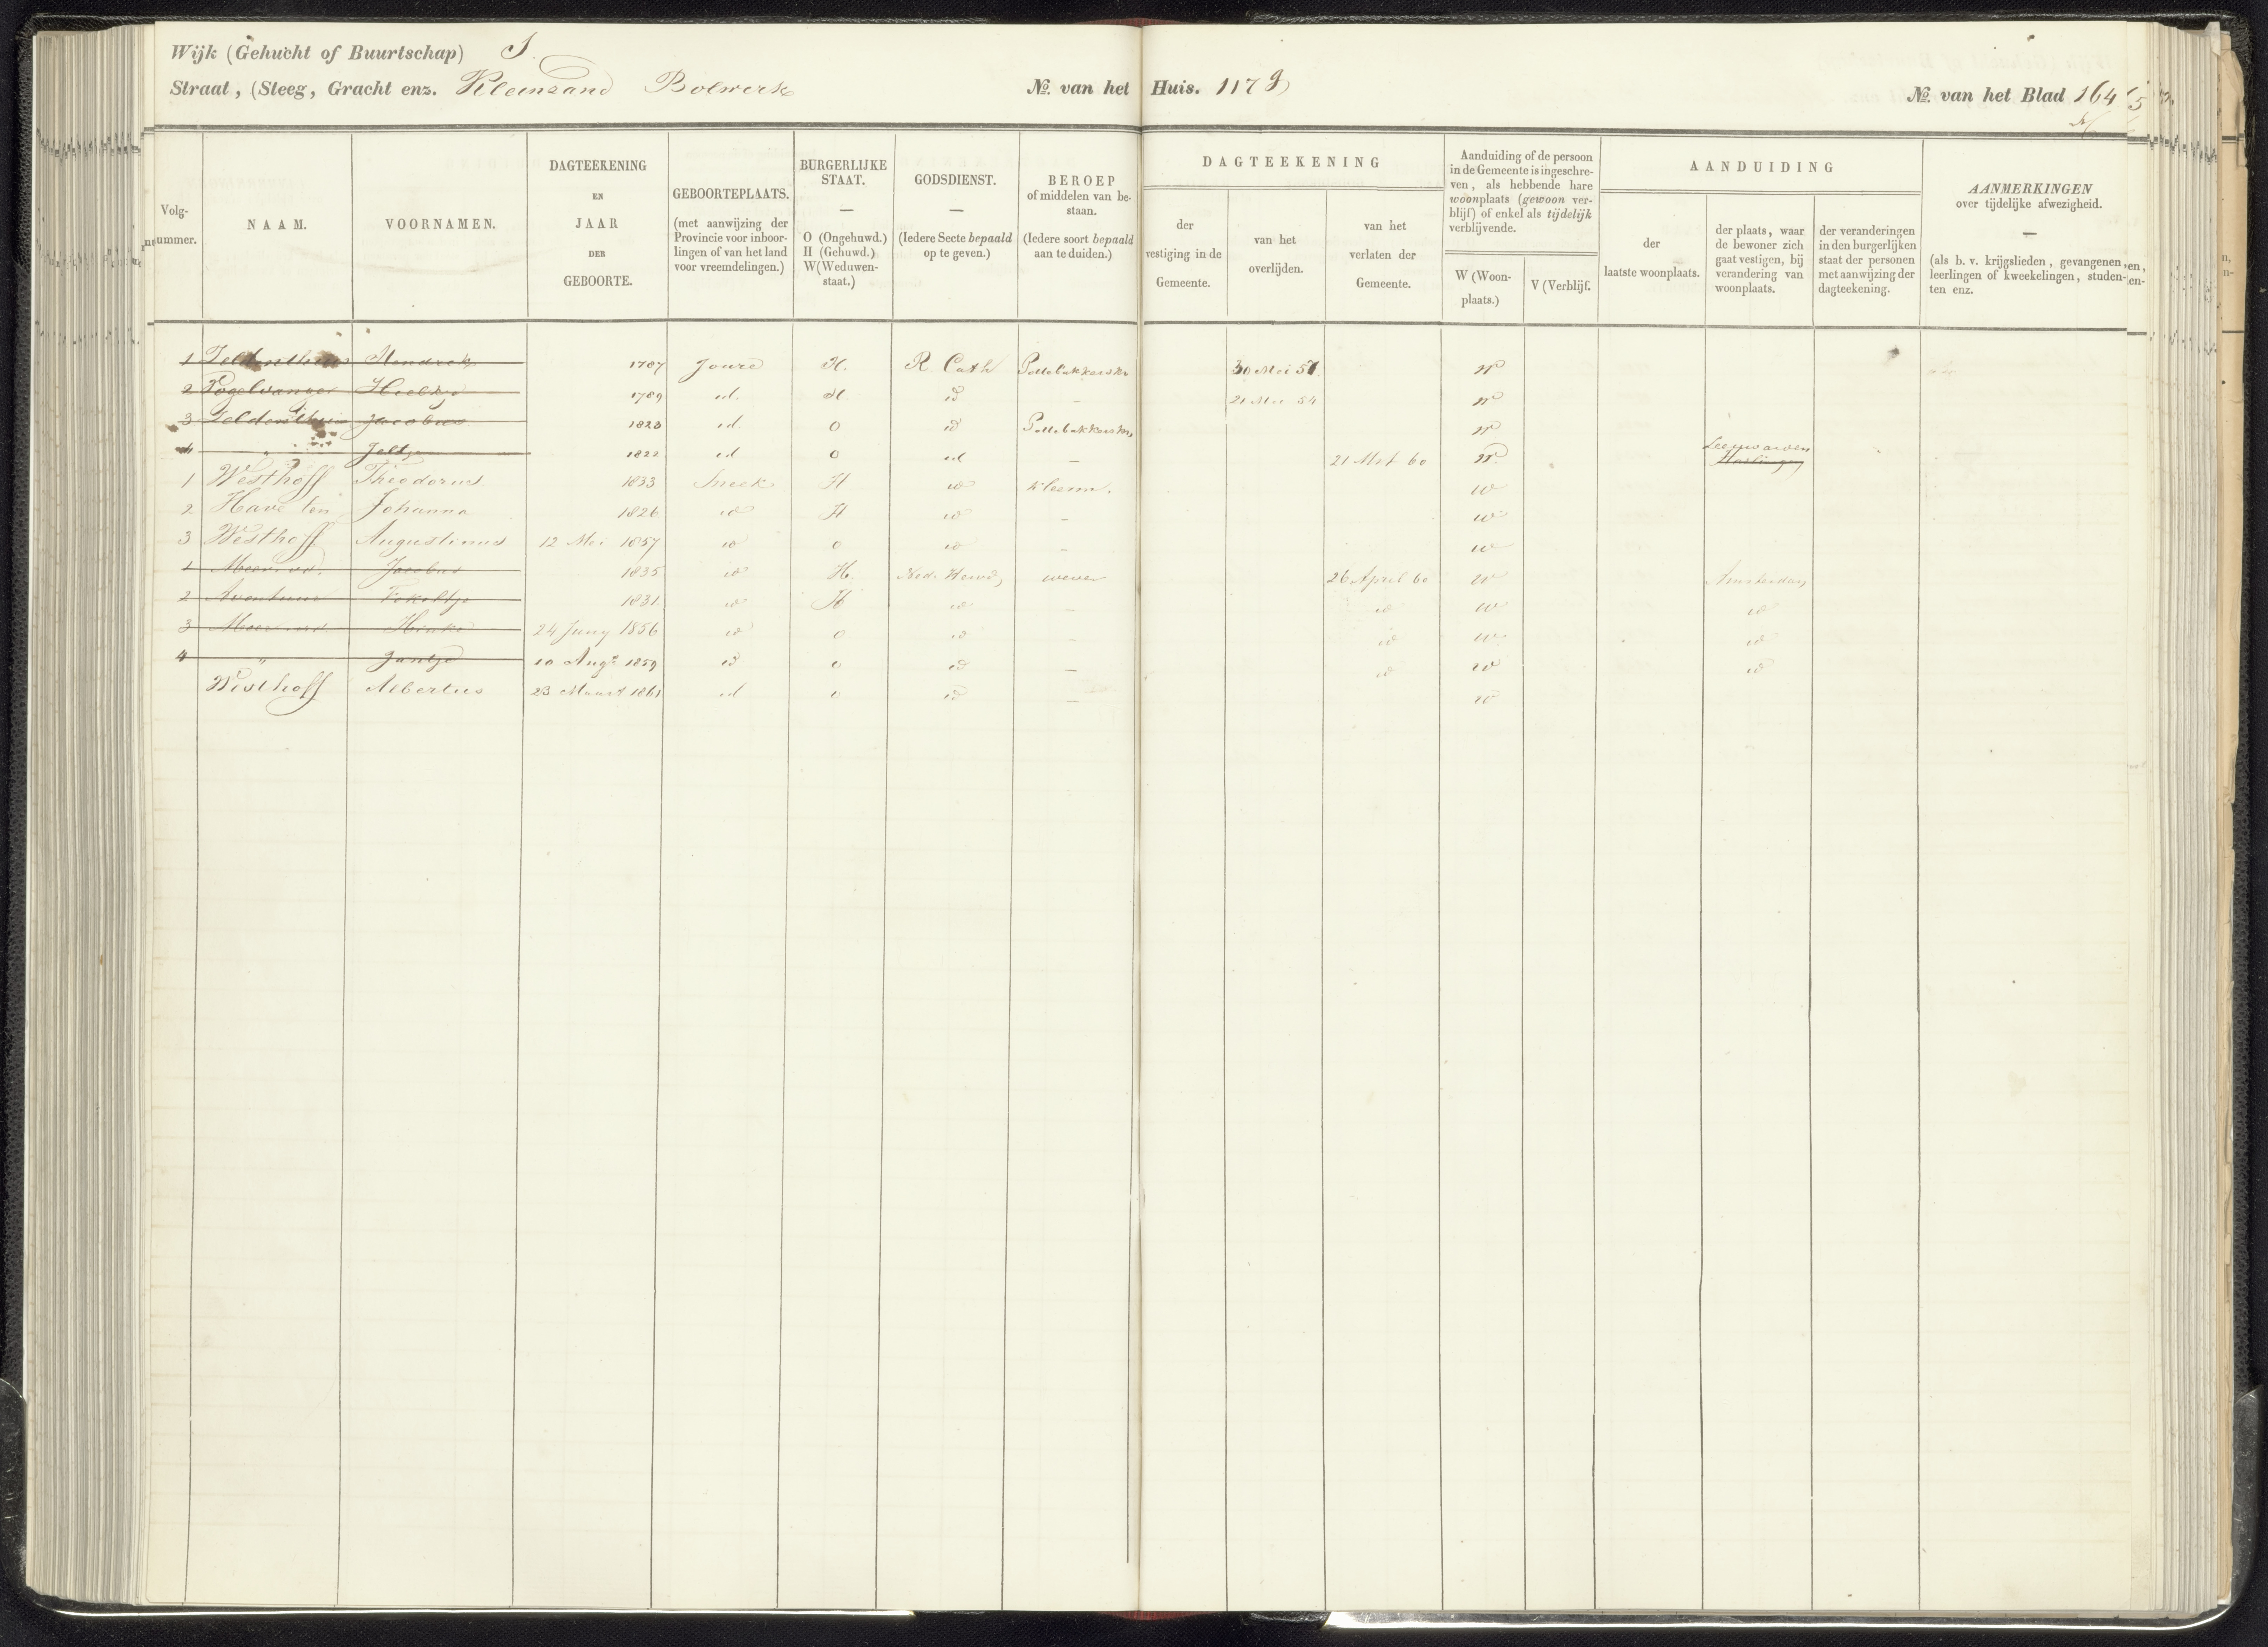 Wijk (Gehucht of Buurtschap) I.
Straat, (Steeg, Gracht enz. Kleinzand Bolwerk No. van het Huis. 117 No. van het Blad 164
Volgnummer.
NAAM.
VOORNAMEN.
DAGTEEKENING
EN
JAAR
DER
GEBOORTE.
GEBOORTEPLAATS.
(met aanwijzing der
Provincie voor inboor-
lingen of van het land
voor vreemdelingen.)
BURGERLIJKE
STAAT.
—
O (Ongehuwd.)
H (Gehuwd.)
W(Weduwen-
staat.)
GODSDIENST.
—
(Iedere Secte bepaald
op te geven.)
BEROEP
of middelen van be-
staan.
(Iedere soort bepaald
aan te duiden.)
DAGTEEKENING
der
vestiging in de
Gemeente.
van het
overlijden.
van het
verlaten der
Gemeente.
Aanduiding of de persoon
in de Gemeente is ingeschre-
ven, als hebbende hare
woonplaats (gewoon ver-
blijf) of enkel als tijdelijk
verblijvende.
W (Woon-
plaats.)
V (Verblijf.
AANDUIDING
der
laatste woonplaats.
der plaats, waar
de bewoner zich
gaat vestigen, bij
verandering van
woonplaats.
der veranderingen
in den burgerlijken
staat der personen
met aanwijzing der
dagteekening.
AANMERKINGEN
over tijdelijke afwezigheid.
—
(als b. v. krijgslieden, gevangenen,
leerlingen of kweekelingen, studen-
ten enz.
1 Hendrik 1787 Joure H. R Cath Pottebakkerskn 30 Mei 57. W
2 Vogelvanger Hieltje 1789 id. H id — 21 Mei 54 W
3 Jacobus 1828 id O id Pottebakkerskn W
4 " Jeltje 1822 id O id — 21 Mrt 60 W Leeuwarden Harlingen
1 Westhoff Theodorus 1833 Sneek H id kleerm. W
2 Have ten Johanna 1826 id H id — W
3 Westhoff Augustinus 12 Mei 1857 id O id — W
1 Meer vd. Jacobus 1835 id H. Ned. Herv. wever 26 April 60 W Amsterdam
2 Aventuur Fokeltje 1831 id H id — id W id
3 Meer vd Hinke 24 Juny 1856 id O id — id W id
4 " Jantje 10 Augt 1859 id O id — id W id
Westhoff Albertus 23 Maart 1861 id O id — W